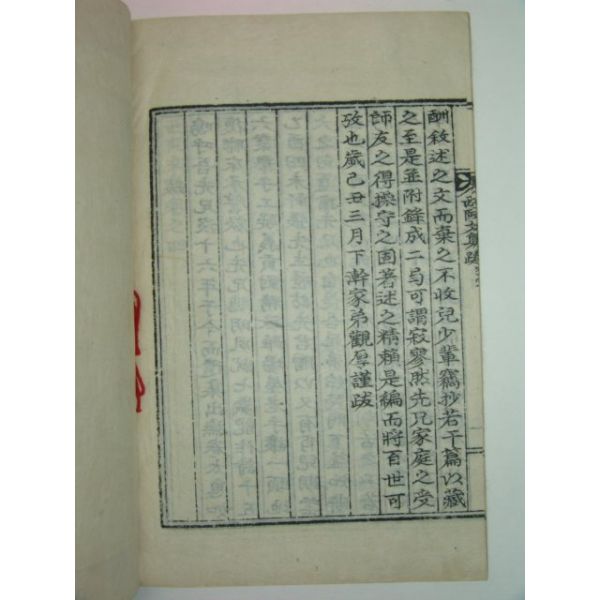 酬敍述之文而棄之不收兒少輩竊抄若干篇以藏
之至是並附錄成二号可謂寂寥然先兄家庭之受
師友之得操守之固著述之精賴是編而將百世可
攷也歲己丑三月下澣家弟觀厚謹跋
文集跋